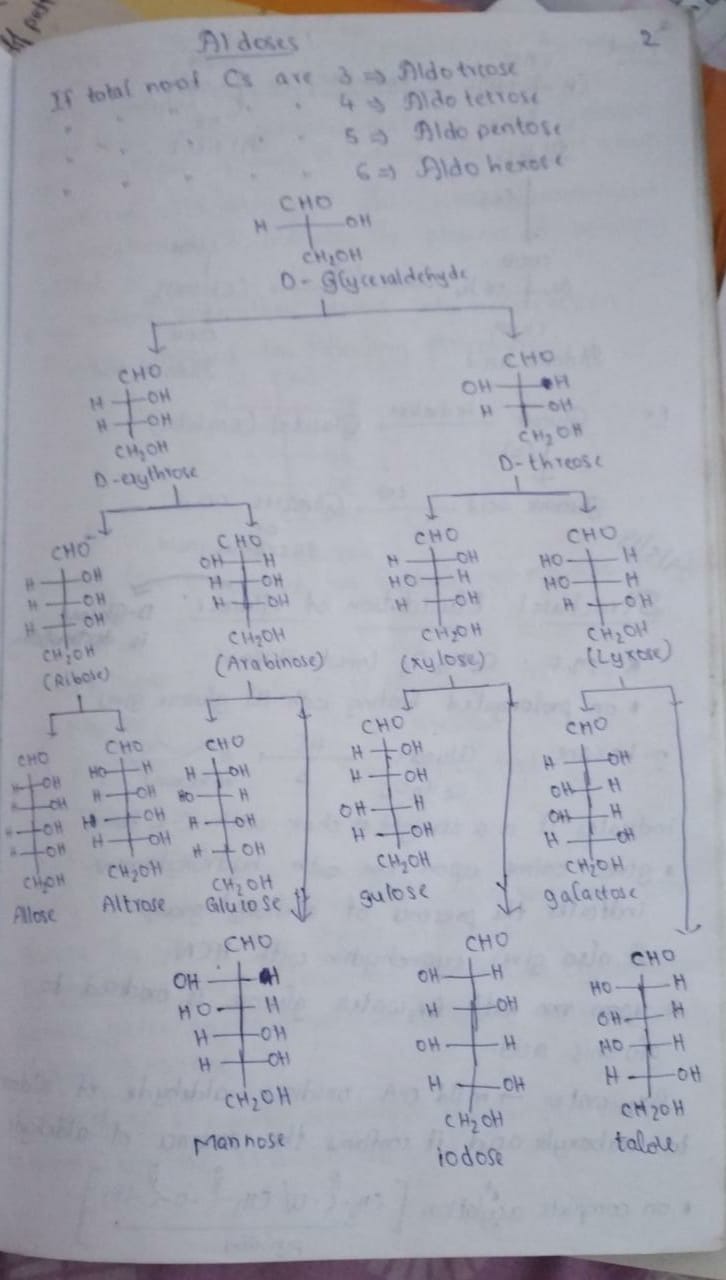 Aldoses
2
If total no of Cs are 3 ⇒ Aldotriose
" " " " 4 ⇒ Aldo tetrose
" " " " 5 ⇒ Aldo pentose
" " " " 6 ⇒ Aldo hexose
CHO
H OH
CH2OH
D- Glyceraldehyde
CHO
H OH
H OH
CH2OH
D-erythrose
CHO
OH H
H OH
CH2OH
D-threose
CHO
H OH
H OH
H OH
CH2OH
(Ribose)
CHO
OH H
H OH
H OH
CH2OH
(Arabinose)
CHO
H OH
HO H
H OH
CH2OH
(xylose)
CHO
HO H
HO H
H OH
CH2OH
(Lyxose)
CHO
H OH
H OH
H OH
H OH
CH2OH
Allose
CHO
HO H
H OH
H OH
H OH
CH2OH
Altrose
CHO
H OH
HO H
H OH
H OH
CH2OH
Glucose
CHO
H OH
H OH
OH H
H OH
CH2OH
gulose
CHO
H OH
OH H
OH H
H OH
CH2OH
galactose
CHO
OH H
HO H
H OH
H OH
CH2OH
Mannose
CHO
OH H
H OH
OH H
H OH
CH2OH
iodose
CHO
HO H
OH H
HO H
H OH
CH2OH
talose